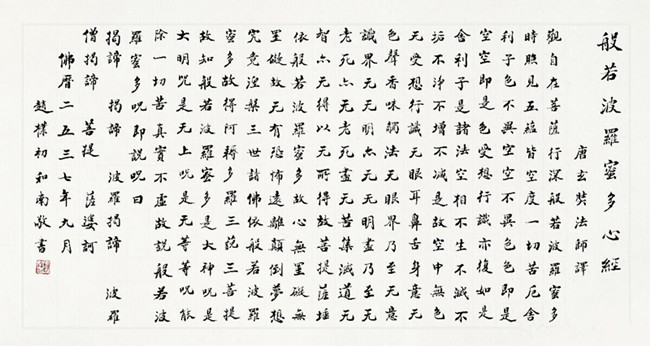 般若波羅蜜多心經
唐玄奘法師譯
觀自在菩薩行深般若波羅蜜多
時照見五蘊皆空度一切苦厄舍
利子色不異空空不異色色即是
空空即是色受想行識亦復如是
舍利子是諸法空相不生不滅不
垢不淨不增不減是故空中無色
无受想行識无眼耳鼻舌身意无
色聲香味觸法无眼界乃至无意
識界无无明亦无无明盡乃至无
老死亦无老死盡无苦集滅道无
智亦无得以无所得故菩提薩埵
依般若波羅蜜多故心无罣礙無
罣礙故无有恐怖遠離顛倒夢想
究竟涅槃三世諸佛依般若波羅
蜜多故得阿耨多羅三藐三菩提
故知般若波羅蜜多是大神咒是
大明咒是无上咒是无等等咒能
除一切苦真實不虛故說般若波
羅蜜多咒即說咒曰
揭諦 揭諦 波羅揭諦 波羅
僧揭諦 菩提 薩婆訶
佛曆二五三七年九月
趙樸初和南敬書